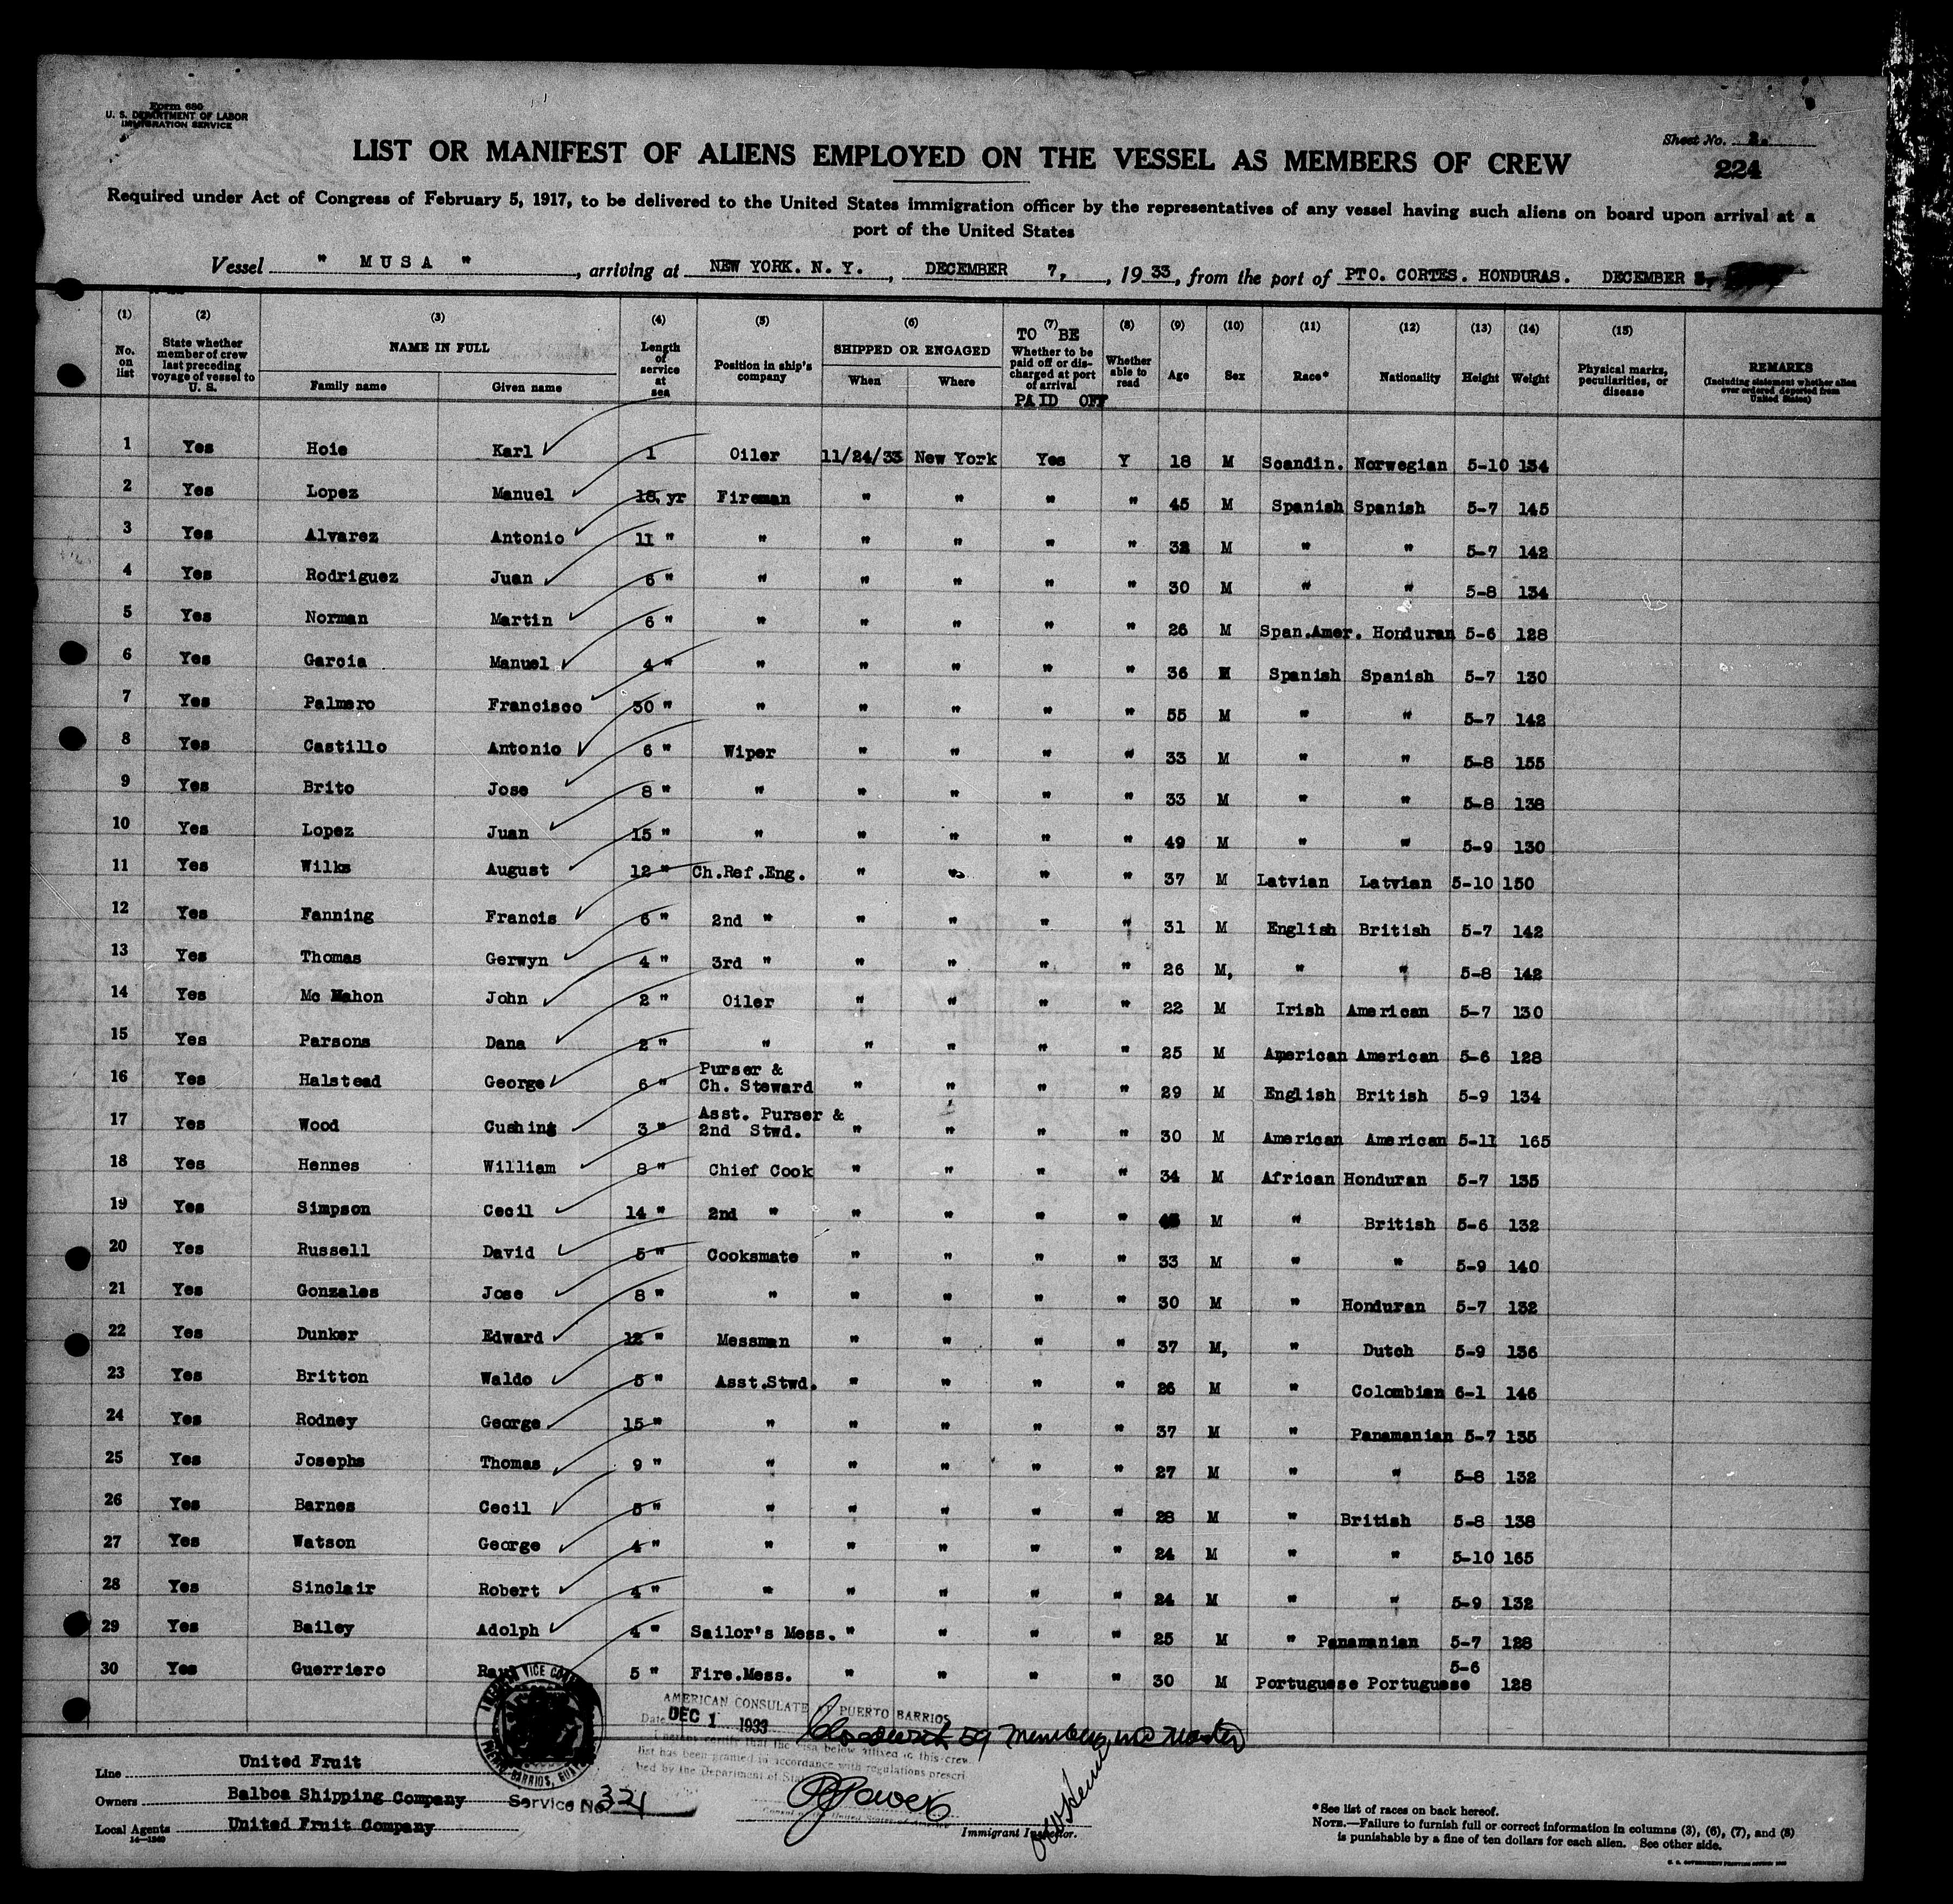 Form 680
U. S. DEPARTMENT OF LABOR
IMMIGRATION SERVICE
Sheet No. 2.
224
LIST OR MANIFEST OF ALIENS EMPLOYED ON THE VESSEL AS MEMBERS OF CREW
Required under Act of Congress of February 5, 1917, to be delivered to the United States immigration officer by the representatives of any vessel having such aliens on board upon arrival at a
port of the United States
Vessel " MUSA " , arriving at NEW YORK. N. Y. , DECEMBER 7, , 1933, from the port of PTO. CORTES. HONDURAS. DECEMBER
(1) No. on list
(2) State whether member of crew last preceding voyage of vessel to U. S.
(3) NAME IN FULL Family name Given name
(4) Length of service at sea
(5) Position in ship's company
(6) SHIPPED OR ENGAGED When Where
(7) TO BE Whether to be paid off or discharged at port of arrival PAID OFF
(8) Whether able to read
(9) Age
(10) Sex
(11) Race*
(12) Nationality
(13) Height
(14) Weight
(15) Physical marks, peculiarities, or disease
REMARKS (Including statement whether alien ever ordered deported from United States)
1 Yes Hoie Karl 1 Oiler 11/24/33 New York Yes Y 18 M Scandin. Norwegian 5-10 134
2 Yes Lopez Manuel 18 yr Fireman " " " " 45 M Spanish Spanish 5-7 145
3 Yes Alvarez Antonio 11 " " " " " " 32 M " " 5-7 142
4 Yes Rodriguez Juan 6 " " " " " " 30 M " " 5-8 134
5 Yes Norman Martin 6 " " " " " " 26 M Span.Amer. Honduran 5-6 128
6 Yes Garcia Manuel 4 " " " " " " 36 M Spanish Spanish 5-7 130
7 Yes Palmero Francisco 30 " " " " " " 55 M " " 5-7 142
8 Yes Castillo Antonio 6 " Wiper " " " " 33 M " " 5-8 155
9 Yes Brito Jose 8 " " " " " " 33 M " " 5-8 138
10 Yes Lopez Juan 15 " " " " " " 49 M " " 5-9 130
11 Yes Wilks August 12 " Ch.Ref.Eng. " " " " 37 M Latvian Latvian 5-10 150
12 Yes Fanning Francis 6 " 2nd " " " " " 31 M English British 5-7 142
13 Yes Thomas Gerwyn 4 " 3rd " " " " " 26 M, " " 5-8 142
14 Yes Mc Mahon John 2 " Oiler " " " " 22 M Irish American 5-7 130
15 Yes Parsons Dana 2 " " " " " " 25 M American American 5-6 128
16 Yes Halstead George 6 " Purser & Ch. Steward " " " " 29 M English British 5-9 134
17 Yes Wood Cushing 3 " Asst. Purser & 2nd Stwd. " " " " 30 M American American 5-11 165
18 Yes Hennes William 8 " Chief Cook " " " " 34 M African Honduran 5-7 135
19 Yes Simpson Cecil 14 " 2nd " " " " " M " British 5-6 132
20 Yes Russell David 5 " Cooksmate " " " " 33 M " " 5-9 140
21 Yes Gonzales Jose 8 " " " " " " 30 M " Honduran 5-7 132
22 Yes Dunker Edward 12 " Messman " " " " 37 M, " Dutch 5-9 136
23 Yes Britton Waldo 5 " Asst.Stwd. " " " " 26 M " Colombian 6-1 146
24 Yes Rodney George 15 " " " " " " 37 M " Panamanian 5-7 135
25 Yes Josephs Thomas 9 " " " " " " 27 M " " 5-8 132
26 Yes Barnes Cecil 5 " " " " " " 28 M " British 5-8 138
27 Yes Watson George 4 " " " " " " 24 M " " 5-10 165
28 Yes Sinclair Robert 4 " " " " " " 24 M " " 5-9 132
29 Yes Bailey Adolph 4 " Sailor's Mess. " " " " 25 M " Panamanian 5-7 128
30 Yes Guerriero Raul 5 " Fire.Mess. " " " " 30 M Portuguese Portuguese 5-6 128
AMERICAN CONSULATE AT PUERTO BARRIOS
Date DEC 1 1933
I hereby certify that the visa below affixed to this crew
list has been granted in accordance with regulations prescri
bed by the Department of State
59 Members
Line United Fruit
Owners Balboa Shipping Company
Local Agents United Fruit Company
14-1240
Service No 321
Consul of the United States of America
Immigrant Inspector.
*See list of races on back hereof.
NOTE.—Failure to furnish full or correct information in columns (3), (6), (7), and (8)
is punishable by a fine of ten dollars for each alien. See other side.